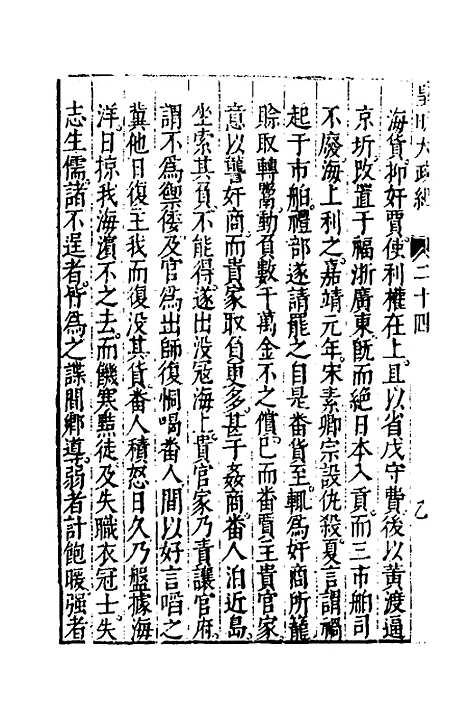 皇明大政紀 二十四 乙
海貨抑奸賈使利權在上且以省戍守費後以黃渡逼
京圻改置于福浙廣東旣而絕日本入貢而三市舶司
不廢海上利之嘉靖元年宋素卿宗設仇殺夏言謂禍
起于市舶禮部遂請罷之自是番貨至輒爲奸商所籠
賒取轉鬻動負數千萬金不之償巳而番賈主貴官家
意以讐奸商而貴家取負更多甚于姦商番人泊近島
坐索其負不能得遂出没冦海上貴官家乃責讓官府
謂不爲禦倭及官爲出師復恫喝番人間以好言㗖之
冀他日復主我而復没其貨番人積怒日久乃盤據海
洋日掠我海濵不之去而饑寒黠徒及失職衣冠士失
志生儒諸不逞者皆爲之諜間鄉導弱者計飽暖强者